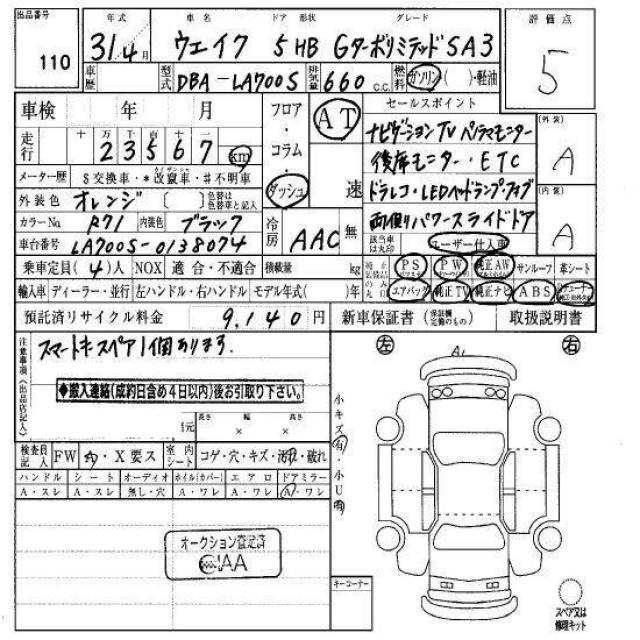 出品番号 年式 車名 ドア 形状 グレード 評価点
110 31.4月 ウェイク 5 HB Gターボリミテッド SA3 5
車歴 型式 DBA-LA700S 排気量 660 c.c. 燃料 ガソリン・( )・軽油
車検 年 月 フロア・コラム・ダッシュ AT 速 セールスポイント
走行 十 万 千 百 十 一 23567 km ナビゲーション TV パノラマモニター
メーター歴 $交換車・*改竄車・#不明車 後席モニター・ETC
外装色 オレンジ [ ] 色替は色替車と記入 ドラレコ・LEDヘッドランプ・フォグ
カラーNo R71 内装色 ブラック 冷房 AAC 無 両側パワースライドドア
車台番号 LA700S-0138074 該当車は丸印 ユーザー仕入車
[外装] A [内装] A
乗車定員(4)人 NOX 適合・不適合 積載量 kg PS PW 純正AW サンルーフ 革シート
輸入車 ディーラー・並行 左ハンドル・右ハンドル モデル年式( )年 エアバッグ 純正TV 純正ナビ ABS
預託済リサイクル料金 9,140円 新車保証書 (保証欄完備のもの) 取扱説明書
注意事項(出品店記入) スマートキースペア1個あります.
◆搬入連絡(成約日含め4日以内)後お引取り下さい。
元 長さ × 幅 × 高さ
小キズ有・小U有
検査員記入 FW A・X要ス 室内シート コゲ・穴・キズ・汚れ・破れ
ハンドル シート オーディオ ホイル(カバー) エアロ ドアミラー
A・スレ A・スレ 無し・穴 A・ワレ A・ワレ A・ワレ
オークション査定済
JAA
キーコーナー
左 A1 右
スペア又は
修理キット